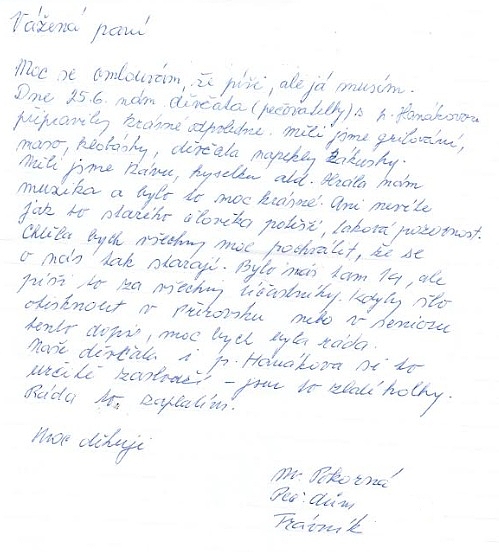 Vážená paní
Moc se omlouvám, že píši, ale já musím.
Dne 25.6. nám děvčata (pečovatelky) s p. Hanákovou
připravily krásné odpoledne. Měli jsme grilování,
maso, klobásky, děvčata napekly zákusky.
Měli jsme kávu, kyselku atd. Hrála nám
muzika a bylo to moc krásné. Ani nevíte
jak to starého člověka potěší, taková pozornost.
Chtěla bych všechny moc pochválit, že se
o nás tak starají. Bylo nás tam 14, ale
píši to za všechny účastníky. Kdyby šlo
otisknout v Přerovsku nebo v senioru
tento dopis, moc bych byla ráda.
Naše děvčata i p. Hanáková si to
určitě zaslouží – jsou to zlaté holky.
Ráda to zaplatím.
Moc děkuji
Pokorná
Peč. dům
Trávník